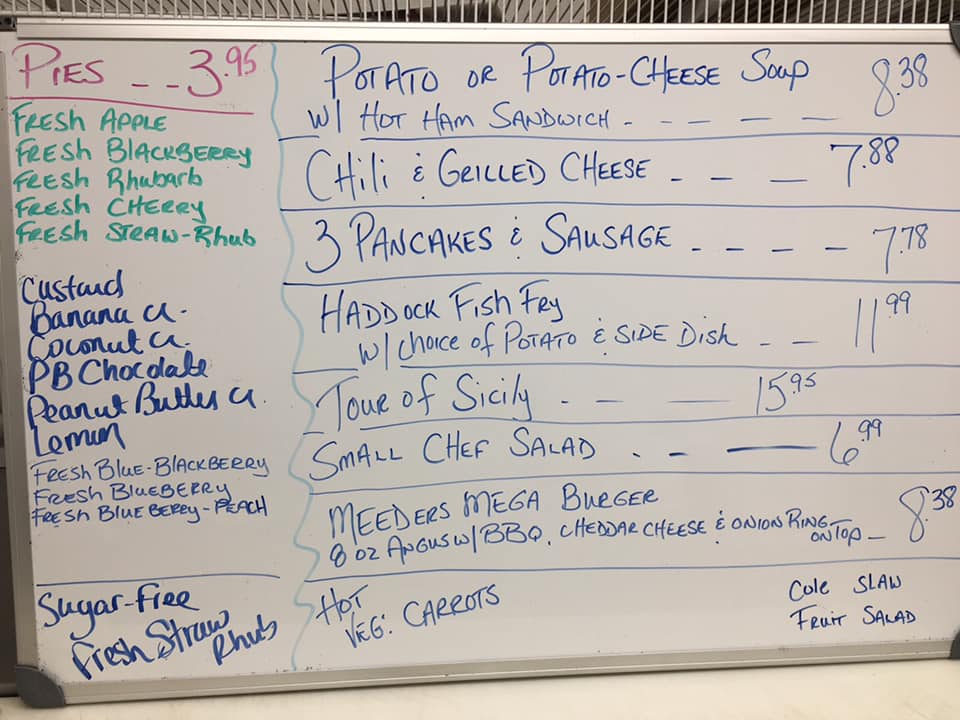 PIES _ _ 3.95
FRESH APPLE
FRESH BLACKBERRY
FRESH Rhubarb
FRESH CHERRY
FRESH STRAW-Rhub
Custard
Banana Cr.
Coconut Cr.
PB Chocolate
Peanut Butter Cr.
Lemon
FRESH BLUE-BLACKBERRY
FRESH BLUEBERRY
FRESH BLUEBERRY-PEACH
Sugar-Free
Fresh Straw
Rhub
POTATO OR POTATO-CHEESE Soup 8.38
W/ HOT HAM SANDWICH - - - - -
CHili & GRILLED CHEESE - - - 7.88
3 PANCAKES & SAUSAGE - - - - 7.78
HADDOCK FISH FRY 11.99
W/ choice of POTATO & SIDE DisH - -
Tour of Sicily - - - 15.95
SMALL CHEF SALAD . - - 6.99
MEEDERS MEGA BURGER 8.38
8 OZ ANGUS W/ BBQ, CHEDDAR CHEESE & ONION RING
ON TOP -
HOT
VEG: CARROTS
Cole SLAW
FRUIT SALAD